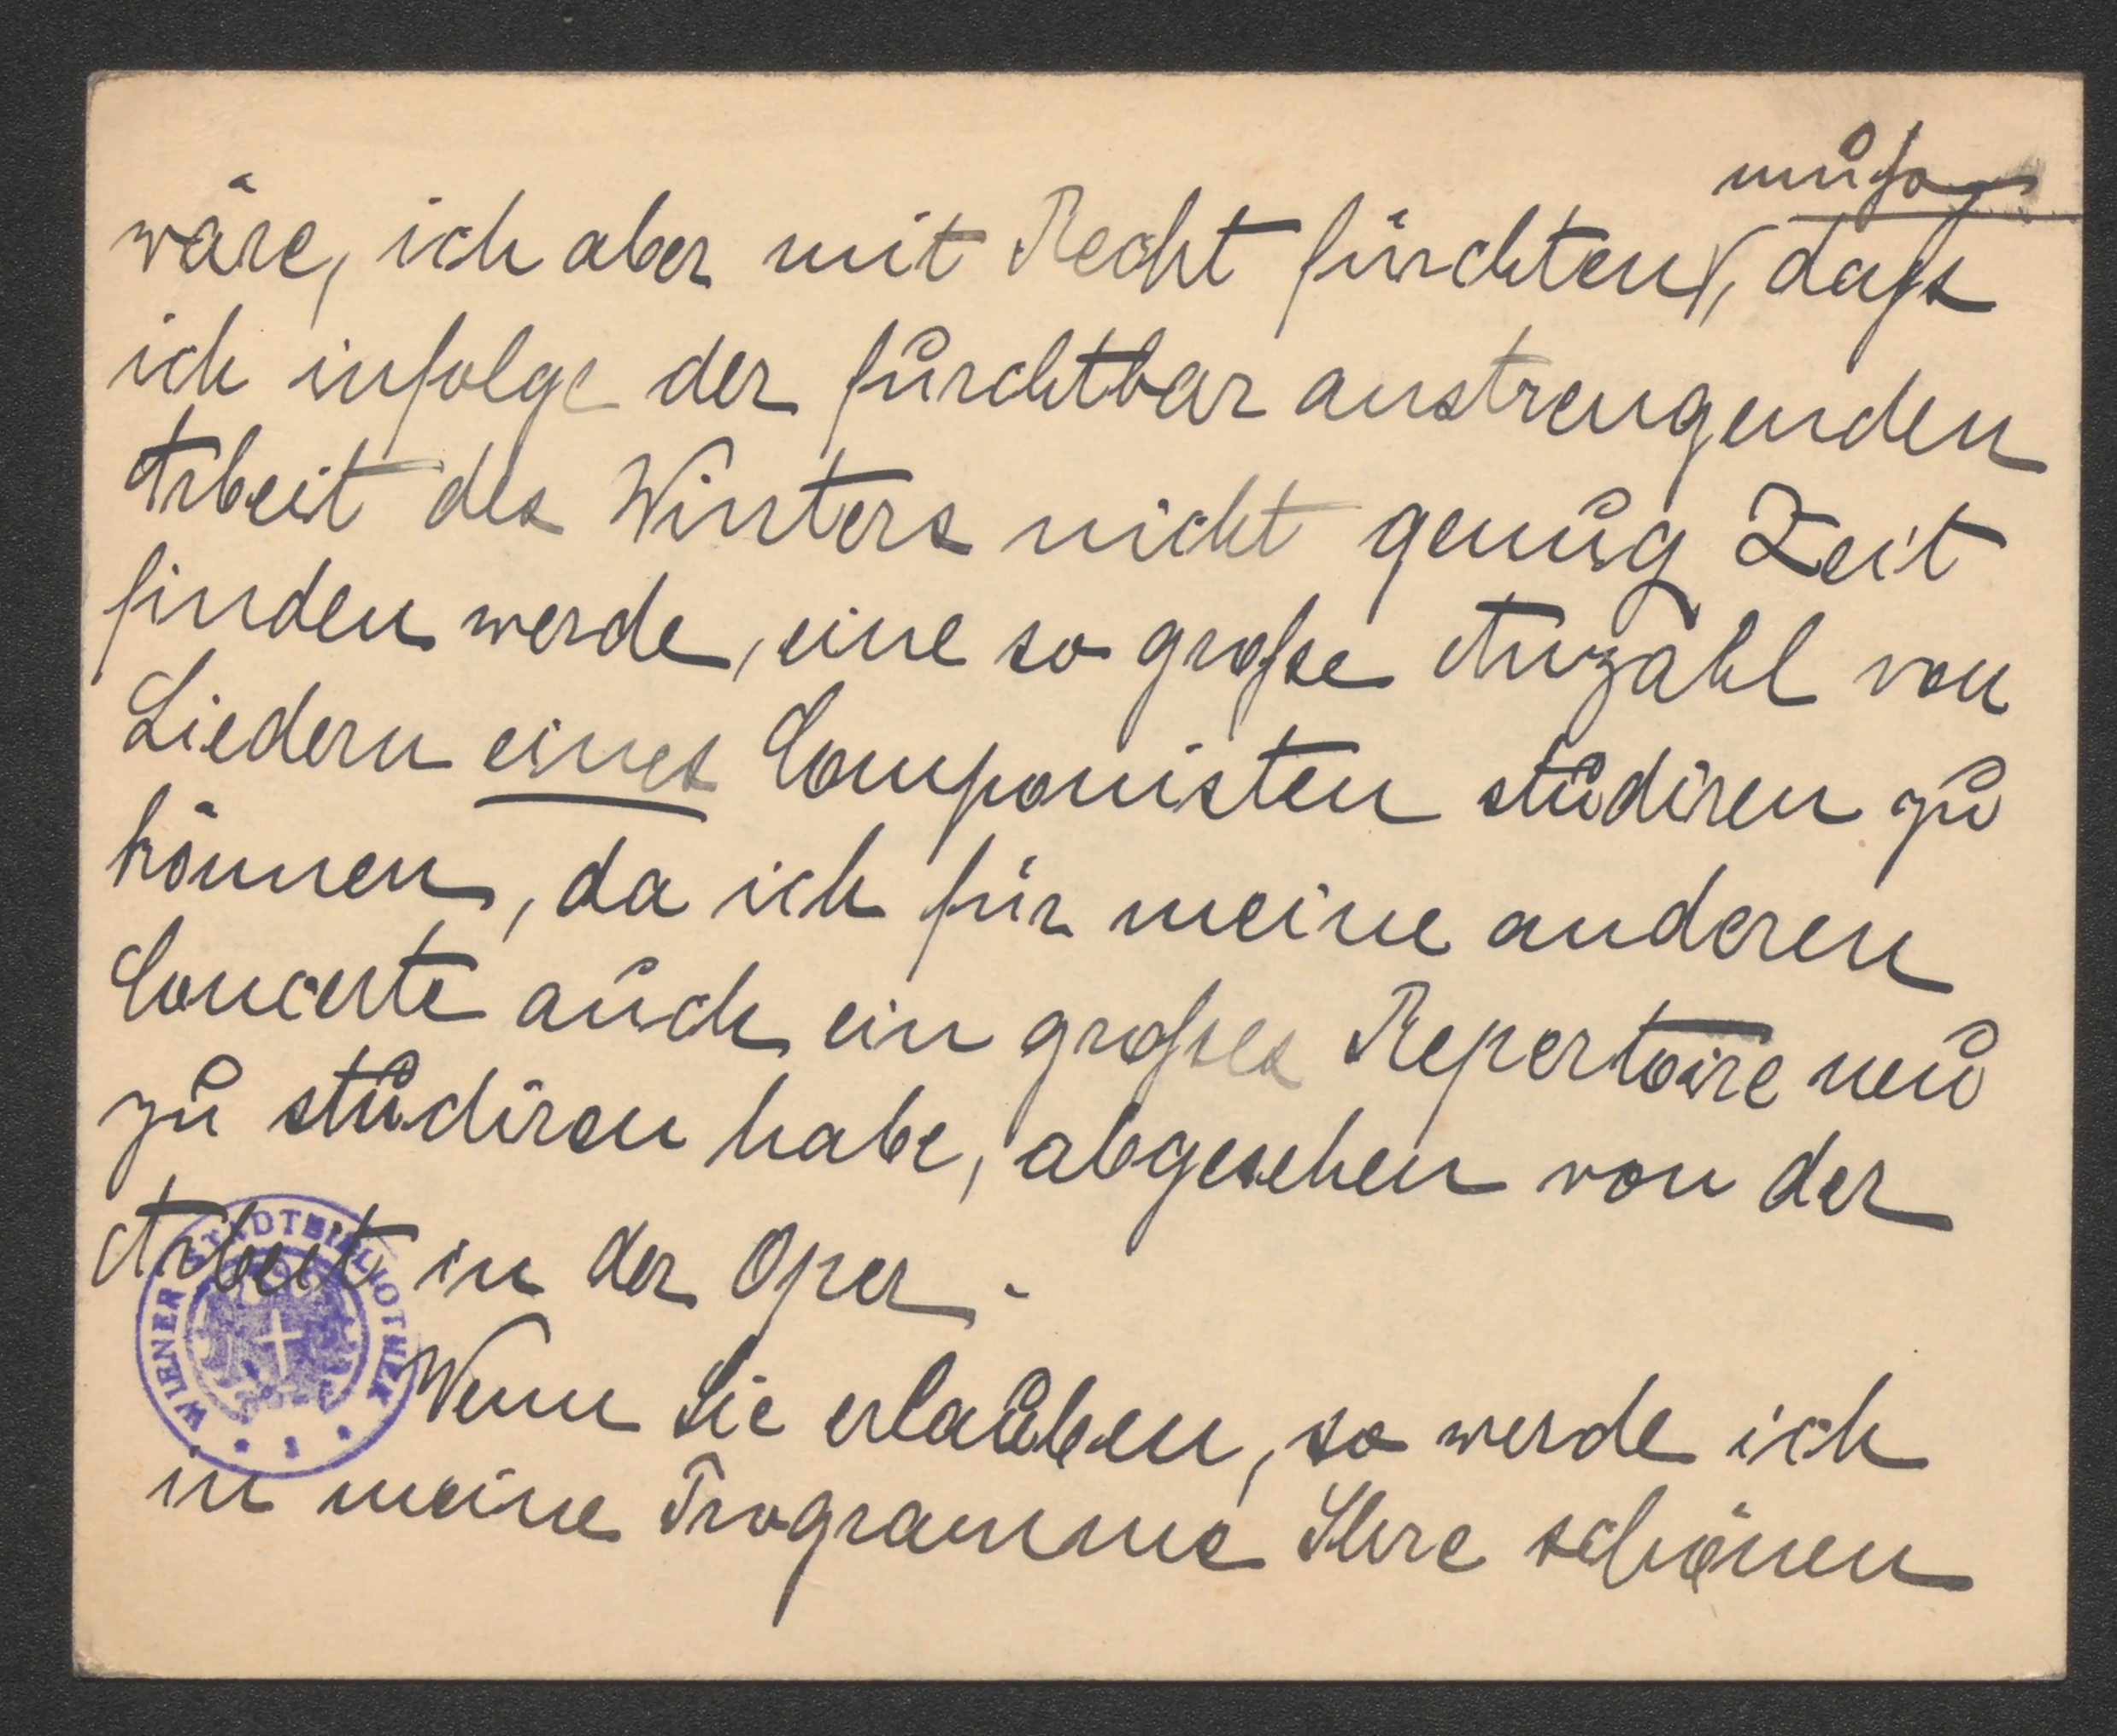 muß
wäre, ich aber mit Recht fürchten, daß
ich infolge der furchtbar anstrengenden
Arbeit des Winters nicht genug Zeit
finden werde, eine so große Anzahl von
Liedern eines Componisten studiren zu
können, da ich für meine anderen
Concerte auch ein großes Repertoire neu
zu studiren habe, abgesehen von der
Arbeit in der Oper.
Wenn Sie erlauben, so werde ich
in meine Programme Ihre schönen
WIENER STADTBIBLIOTHEK